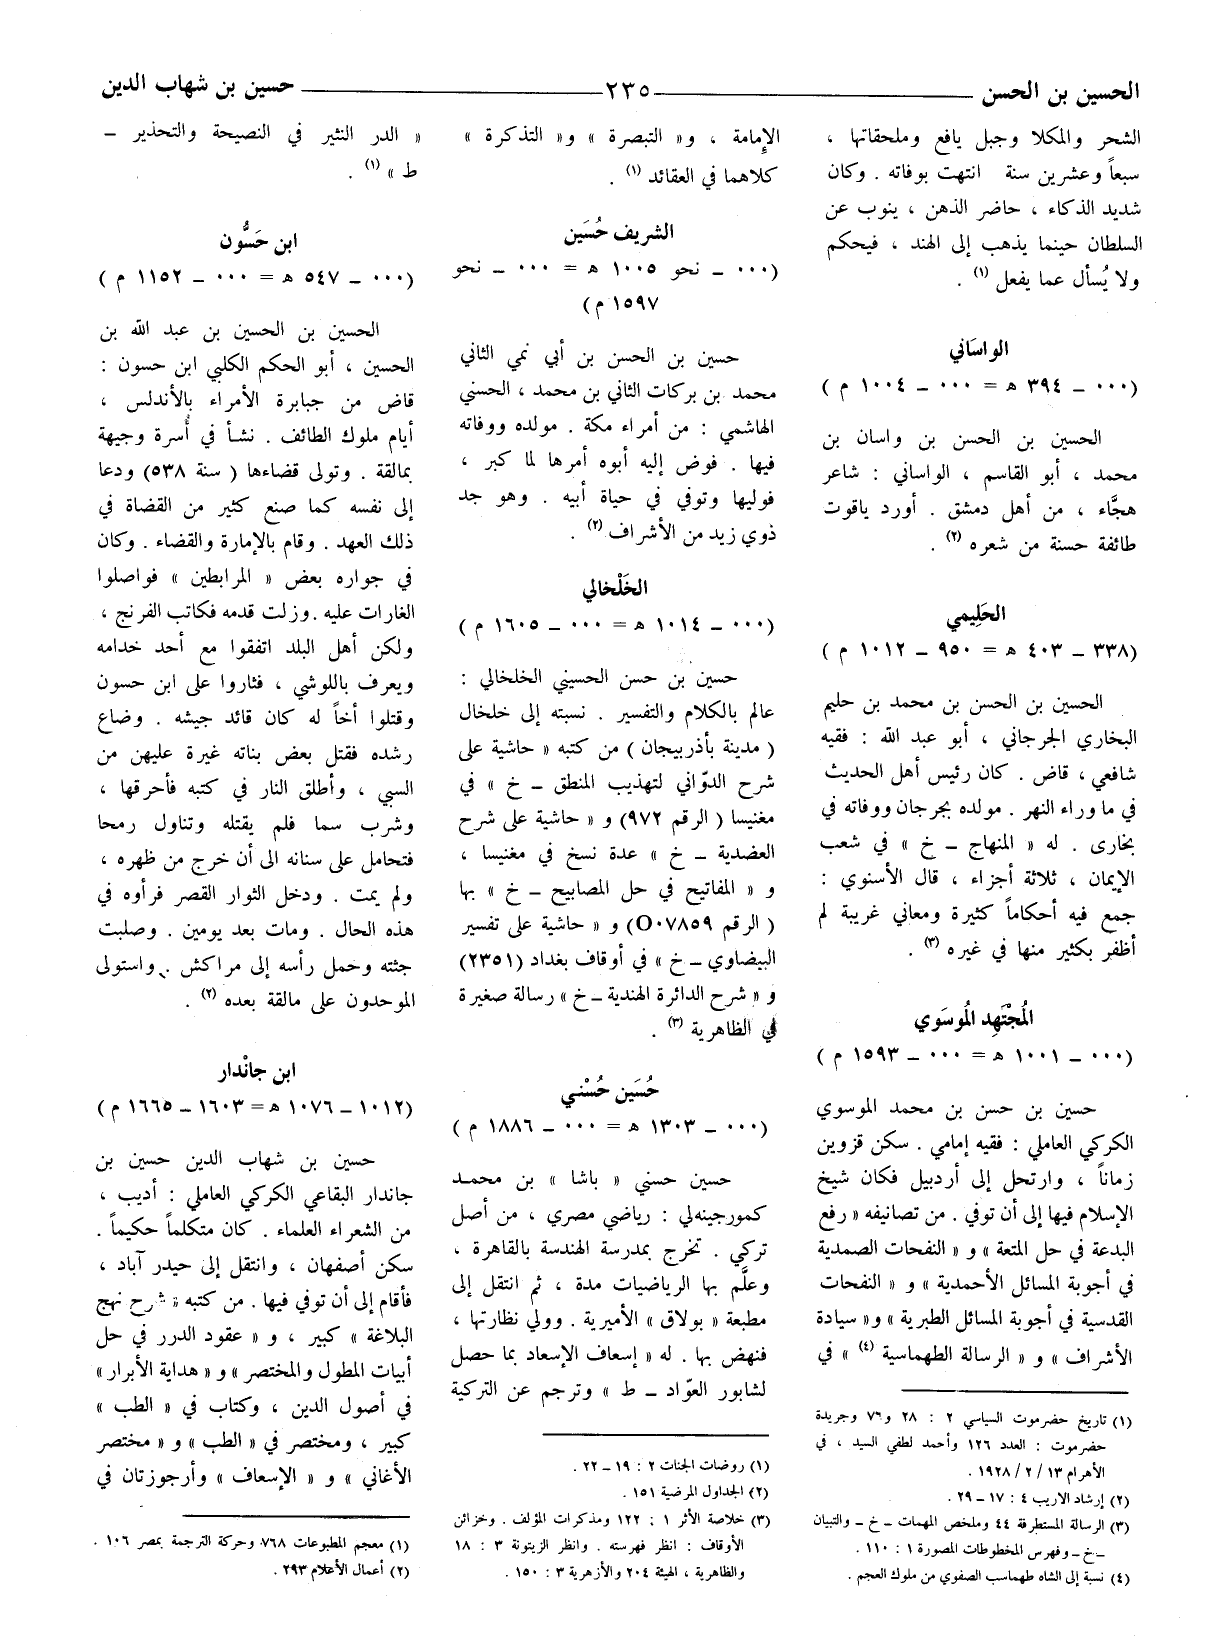 الحسين بن الحسن
٢٣٥
حسين بن شهاب الدين
الشحر والمكلا وجبل يافع وملحقاتها ،
سبعاً وعشرين سنة انتهت بوفاته . وكان
شديد الذكاء ، حاضر الذهن ، ينوب عن
السلطان حينما يذهب إلى الهند ، فيحكم
ولا يُسأل عما يفعل (١) .
الواسَاني
(٠٠٠ ــ ٣٩٤ هـ = ٠٠٠ ــ ١٠٠٤ م )
الحسين بن الحسن بن واسان بن
محمد ، أبو القاسم ، الواساني : شاعر
هجَّاء ، من أهل دمشق . أورد ياقوت
طائفة حسنة من شعره (٢) .
الحَلِيمي
(٣٣٨ ــ ٤٠٣ هـ = ٩٥٠ ــ ١٠١٢ م )
الحسين بن الحسن بن محمد بن حليم
البخاري الجرجاني ، أبو عبد الله : فقيه
شافعي ، قاض . كان رئيس أهل الحديث
في ما وراء النهر . مولده بجرجان ووفاته في
بخارى . له « المنهاج ــ خ » في شعب
الإيمان ، ثلاثة أجزاء ، قال الأسنوي :
جمع فيه أحكاماً كثيرة ومعاني غريبة لم
أظفر بكثير منها في غيره (٣) .
المُجْتَهِد المُوسَوي
(٠٠٠ ــ ١٠٠١ هـ = ٠٠٠ ــ ١٥٩٣ م )
حسين بن حسن بن محمد الموسوي
الكركي العاملي : فقيه إمامي . سكن قزوين
زماناً ، وارتحل إلى أردبيل فكان شيخ
الإسلام فيها إلى أن توفي . من تصانيفه « رفع
البدعة في حل المتعة » و « النفحات الصمدية
في أجوبة المسائل الأحمدية » و « النفحات
القدسية في أجوبة المسائل الطبرية » و« سيادة
الأشراف » و « الرسالة الطهماسية (٤) » في
(١) تاريخ حضرموت السياسي ٢ : ٢٨ و٧٦ وجريدة
حضرموت : العدد ١٢٦ وأحمد لطفي السيد ، في
الأهرام ١٣ / ٢ / ١٩٢٨ .
(٢) إرشاد الاريب ٤ : ١٧ ــ ٢٩ .
(٣) الرسالة المستطرفة ٤٤ وملخص المهمات ــ خ ــ والتبيان
ــ خ ــ وفهرس المخطوطات المصورة ١ : ١١٠ .
(٤) نسبة إلى الشاه طهماسب الصفوي من ملوك العجم .
الإمامة ، و« التبصرة » و« التذكرة »
كلاهما في العقائد (١) .
الشريف حُسَين
(٠٠٠ ــ نحو ١٠٠٥ هـ = ٠٠٠ ــ نحو
١٥٩٧ م )
حسين بن الحسن بن أبي نمي الثاني
محمد بن بركات الثاني بن محمد ، الحسني
الهاشمي : من أمراء مكة . مولده ووفاته
فيها . فوض إليه أبوه أمرها لما كبر ،
فوليها وتوفي في حياة أبيه . وهو جد
ذوي زيد من الأشراف (٢) .
الخَلْخالي
(٠٠٠ ــ ١٠١٤ هـ = ٠٠٠ ــ ١٦٠٥ م )
حسين بن حسن الحسيني الخلخالي :
عالم بالكلام والتفسير . نسبته إلى خلخال
( مدينة بأذربيجان ) من كتبه « حاشية على
شرح الدوّاني لتهذيب المنطق ــ خ » في
مغنيسا ( الرقم ٩٧٢) و « حاشية على شرح
العضدية ــ خ » عدة نسخ في مغنيسا ،
و « المفاتيح في حل المصابيح ــ خ » بها
( الرقم O٠٧٨٥٩) و « حاشية على تفسير
البيضاوي ــ خ » في أوقاف بغداد (٢٣٥١)
و « شرح الدائرة الهندية ــ خ » رسالة صغيرة
في الظاهرية (٣) .
حُسَين حُسْني
(٠٠٠ ــ ١٣٠٣ هـ = ٠٠٠ ــ ١٨٨٦ م )
حسين حسني « باشا » بن محمد
كمورجينه‌لي : رياضي مصري ، من أصل
تركي . تخرج بمدرسة الهندسة بالقاهرة ،
وعلَّم بها الرياضيات مدة ، ثم انتقل إلى
مطبعة « بولاق » الأميرية . وولي نظارتها ،
فنهض بها . له « إسعاف الإسعاد بما حصل
لشابور العوّاد ــ ط » وترجم عن التركية
(١) روضات الجنات ٢ : ١٩ ــ ٢٢ .
(٢) الجداول المرضية ١٥١ .
(٣) خلاصة الأثر ١ : ١٢٢ ومذكرات المؤلف . وخزائن
الأوقاف : انظر فهرسته . وانظر الزيتونة ٣ : ١٨
والظاهرية ، الهيئة ٢٠٤ والأزهرية ٣ : ١٥٠ .
« الدر النثير في النصيحة والتحذير ــ
ط » (١) .
ابن حَسُّون
(٠٠٠ ــ ٥٤٧ هـ = ٠٠٠ ــ ١١٥٢ م )
الحسين بن الحسين بن عبد الله بن
الحسين ، أبو الحكم الكلبي ابن حسون :
قاض من جبابرة الأمراء بالأندلس ،
أيام ملوك الطائف . نشأ في أسرة وجيهة
بمالقة . وتولى قضاءها ( سنة ٥٣٨) ودعا
إلى نفسه كما صنع كثير من القضاة في
ذلك العهد . وقام بالإمارة والقضاء . وكان
في جواره بعض « المرابطين » فواصلوا
الغارات عليه . وزلت قدمه فكاتب الفرنج ،
ولكن أهل البلد اتفقوا مع أحد خدامه
ويعرف باللوشي ، فثاروا على ابن حسون
وقتلوا أخاً له كان قائد جيشه . وضاع
رشده فقتل بعض بناته غيرة عليهن من
السبي ، وأطلق النار في كتبه فأحرقها ،
وشرب سما فلم يقتله وتناول رمحا
فتحامل على سنانه الى أن خرج من ظهره ،
ولم يمت . ودخل الثوار القصر فرأوه في
هذه الحال . ومات بعد يومين . وصلبت
جثته وحمل رأسه إلى مراكش . واستولى
الموحدون على مالقة بعده (٢) .
ابن جانْدار
(١٠١٢ ــ ١٠٧٦ هـ = ١٦٠٣ ــ ١٦٦٥ م )
حسين بن شهاب الدين حسين بن
جاندار البقاعي الكركي العاملي : أديب ،
من الشعراء العلماء . كان متكلماً حكيماً .
سكن أصفهان ، وانتقل إلى حيدر آباد ،
فأقام إلى أن توفي فيها . من كتبه « شرح نهج
البلاغة » كبير ، و « عقود الدرر في حل
أبيات المطول والمختصر » و « هداية الأبرار »
في أصول الدين ، وكتاب في « الطب »
كبير ، ومختصر في « الطب » و « مختصر
الأغاني » و « الإسعاف » وأرجوزتان في
(١) معجم المطبوعات ٧٦٨ وحركة الترجمة بمصر ١٠٦ .
(٢) أعمال الأعلام ٢٩٣ .